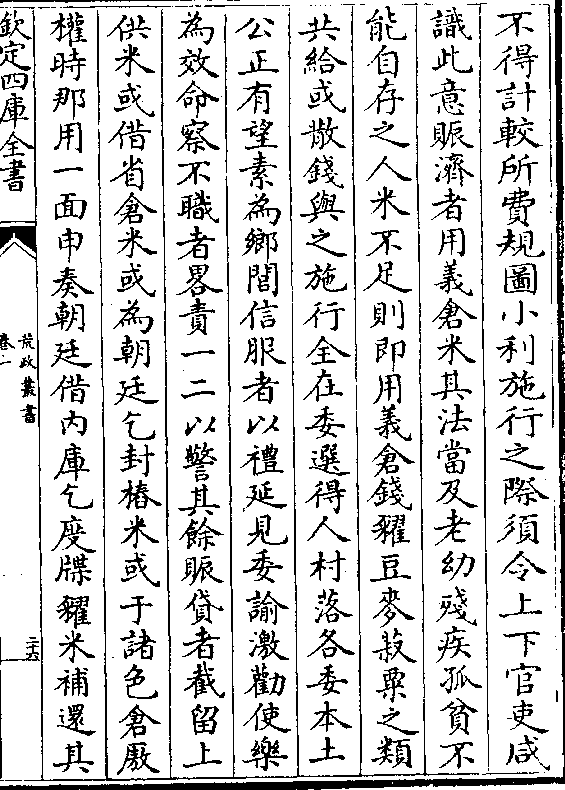 不得計較所費規圖小利施行之際須令上下官吏咸
識此意賑濟者用義倉米其法當及老幼殘疾孤貧不
能自存之人米不足則即用義倉錢糴豆麥菽粟之類
共給或散錢與之施行全在委選得人村落各委本土
公正有望素為鄉閭信服者以禮延見委諭激勸使樂
為效命察不職者畧責一二以警其餘賑貸者截留上
供米或借省倉米或為朝廷乞封樁米或于諸色倉厫
權時那用一面申奏朝廷借内庫乞度牒糴米補還其
欽定四庫全書
荒政叢書
卷一
二十六